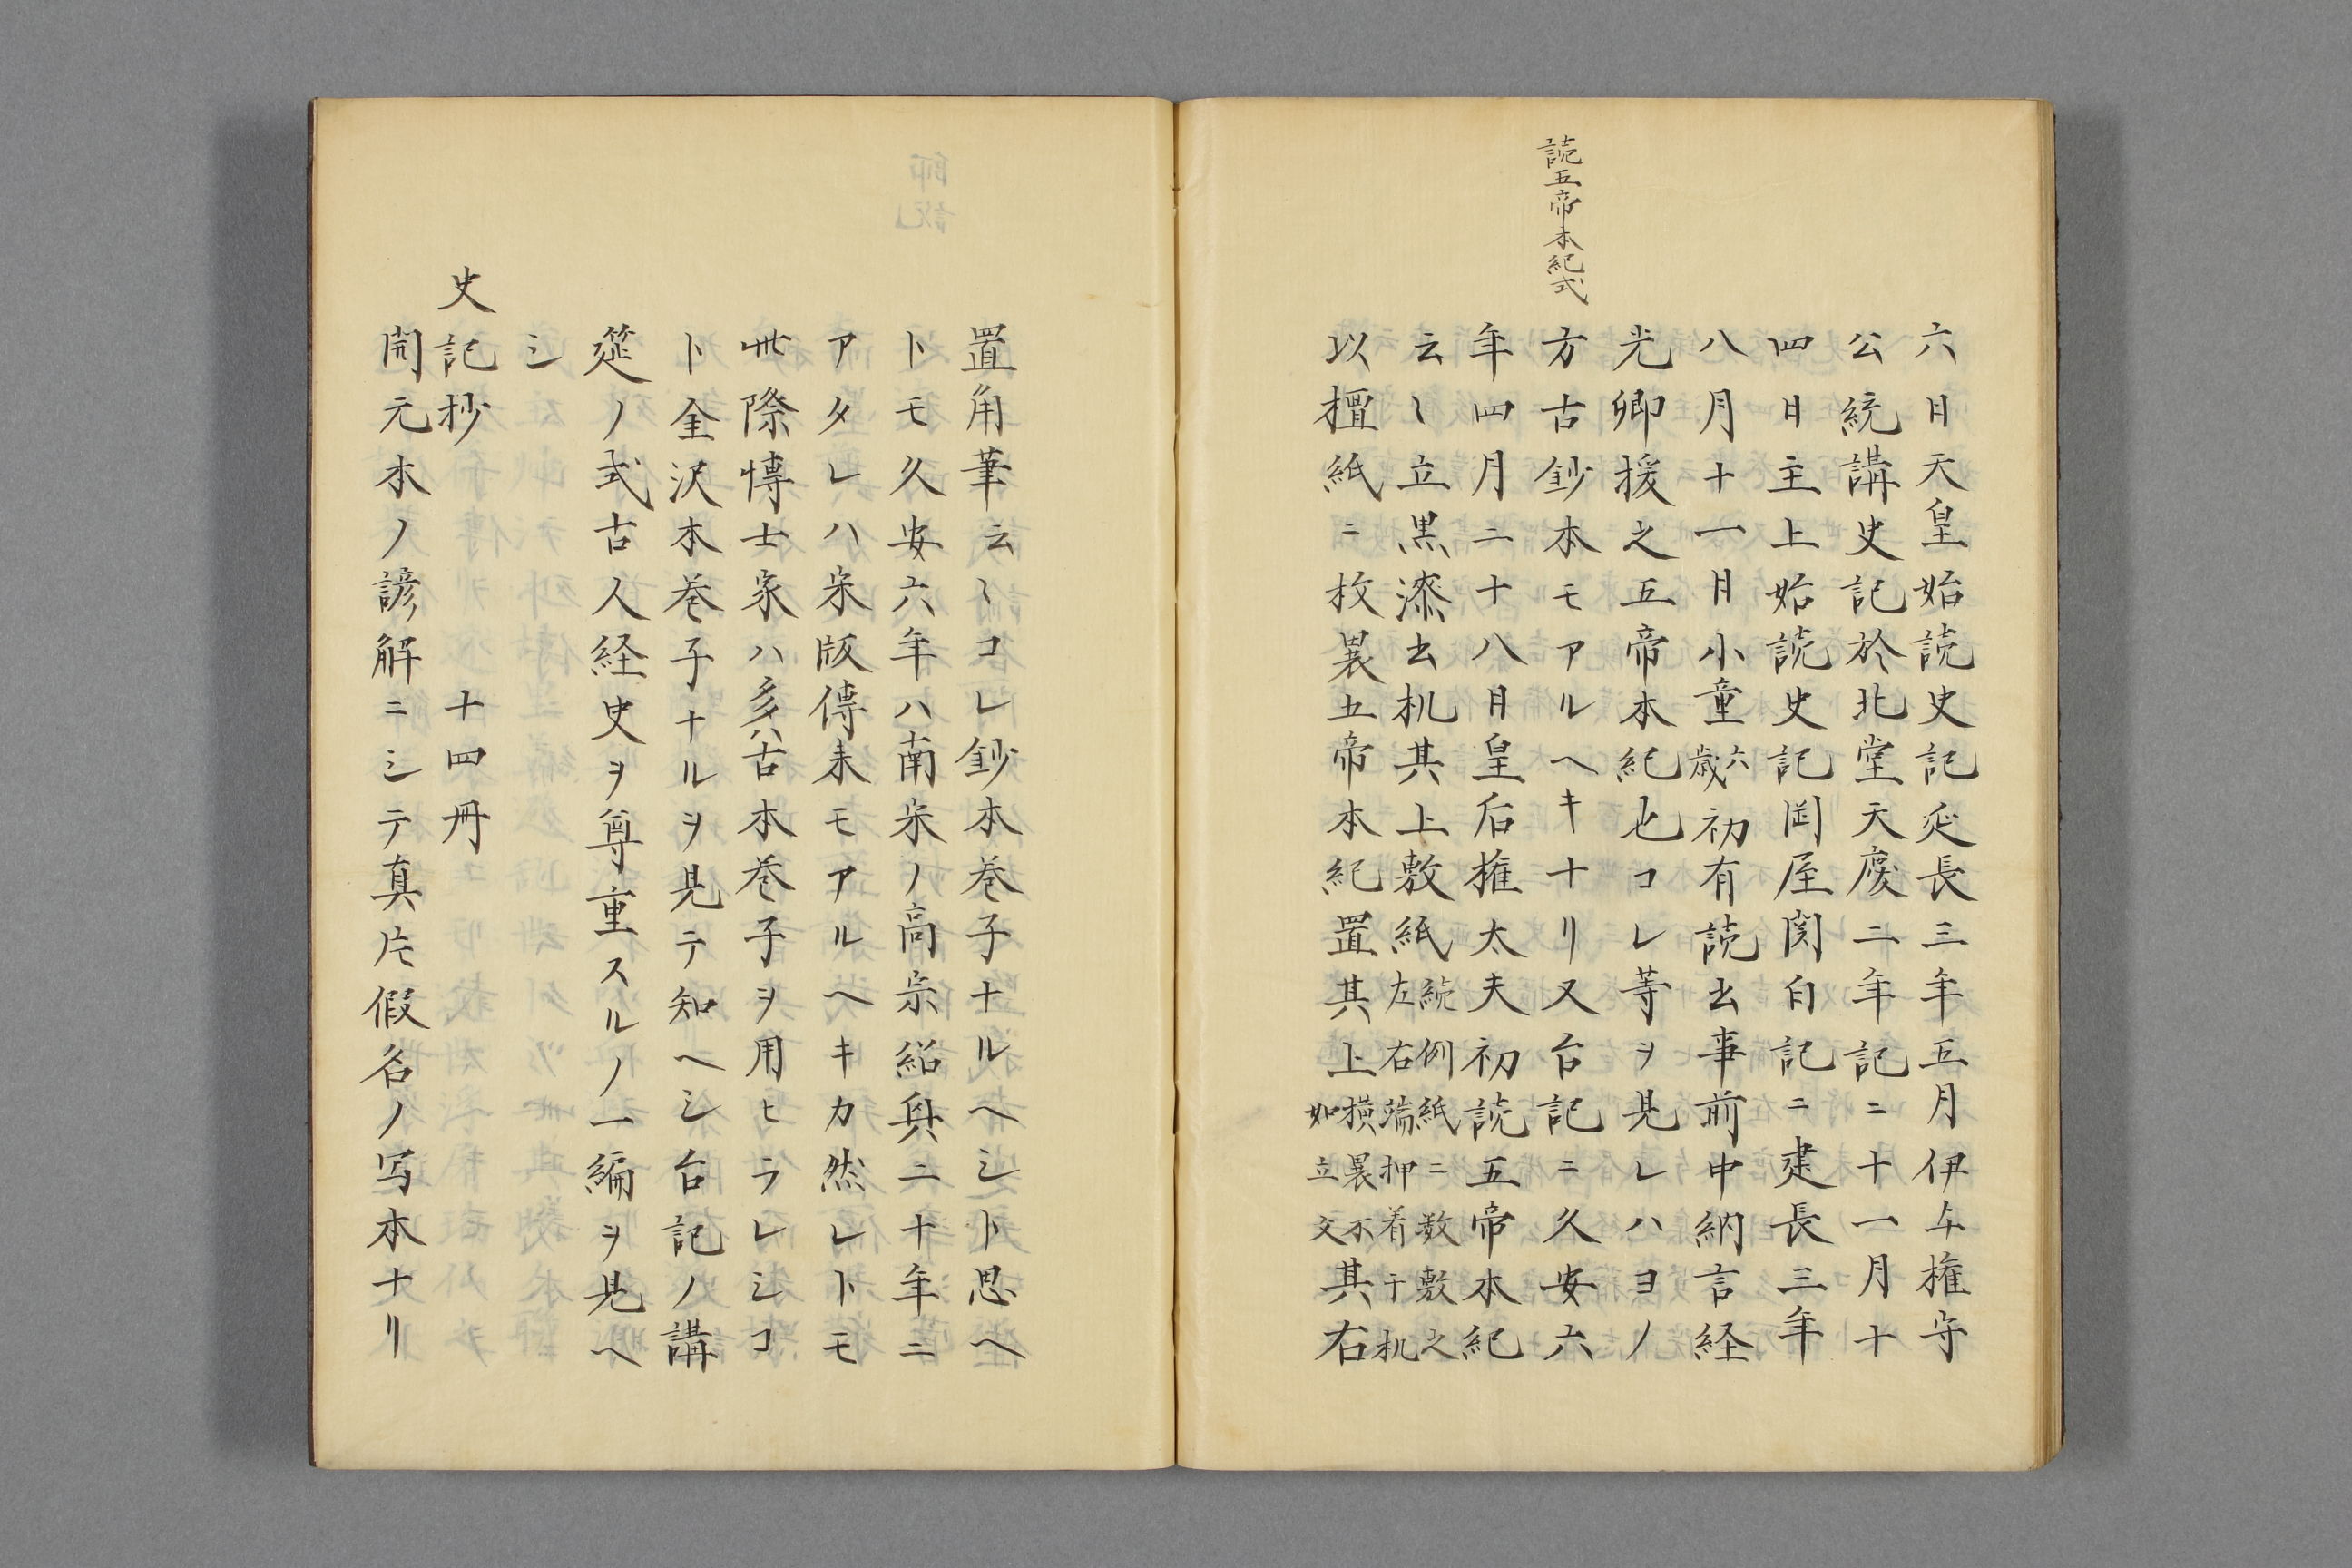 読五帝本紀式
六日天皇始読史記延長三年五月伊与権守
公統講史記於北堂天慶二年記ニ十一月十
四日主上始読史記岡屋関白記ニ建長三年
八月十一日小童六歳初有読書事前中納言経
光卿援之五帝本紀也コレ等ヲ見レハヨノ
方古鈔本モアルヘキナリ又台記ニ久安六
年四月二十八日皇后権太夫初読五帝本紀
云〻立黒漆書机其上敷紙続例紙二数敷之左右端押着于机
以檀紙二枚裹五帝本紀置其上横裹不如立文其右
置角筆云〻コレ鈔本巻子ナルヘシト思ヘ
トモ久安六年ハ南宋ノ高宗紹興二十年ニ
アタレハ宋版傳来モアルヘキカ然レトモ
此際博士家ハ多ハ古本巻子ヲ用ヒラレシコ
ト金沢本巻子ナルヲ見テ知ヘシ台記ノ講
筵ノ式古人経史ヲ尊重スルノ一編ヲ見ヘ
シ
史記抄　十四冊
開元本ノ諺解ニシテ真片假名ノ写本ナリ